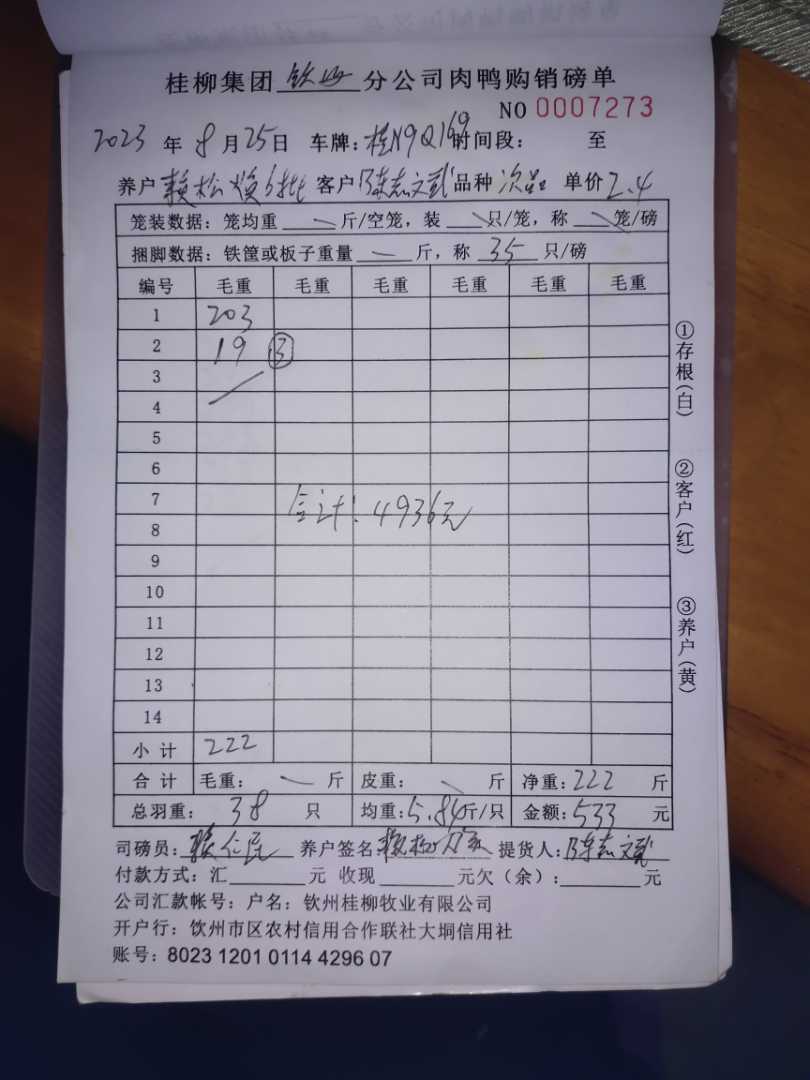 桂柳集团 钦州 分公司肉鸭购销磅单
NO 0007273
2023 年 8 月 25 日 车牌：桂N9Q169 时间段： 至
养户 赖松焕6批 客户 陈志文武 品种 次品 单价 2.4
笼装数据：笼均重 斤/空笼，装 只/笼，称 笼/磅
捆脚数据：铁筐或板子重量 斤，称 35 只/磅
编号 毛重 毛重 毛重 毛重 毛重 毛重
1 203
2 19 ③
3
4
5
6
7
合计：4936元
8
9
10
11
12
13
14
小计 222
合计 毛重： 斤 皮重： 斤 净重：222 斤
总羽重： 38 只 均重：5.84斤/只 金额：533 元
司磅员：赖仁民 养户签名：赖松焕 提货人：陈志文武
付款方式：汇 元 收现 元欠（余）： 元
公司汇款帐号：户名：钦州桂柳牧业有限公司
开户行：饮州市区农村信用合作联社大垌信用社
账号：8023 1201 0114 4296 07
①存根(白)
②客户(红)
③养户(黄)